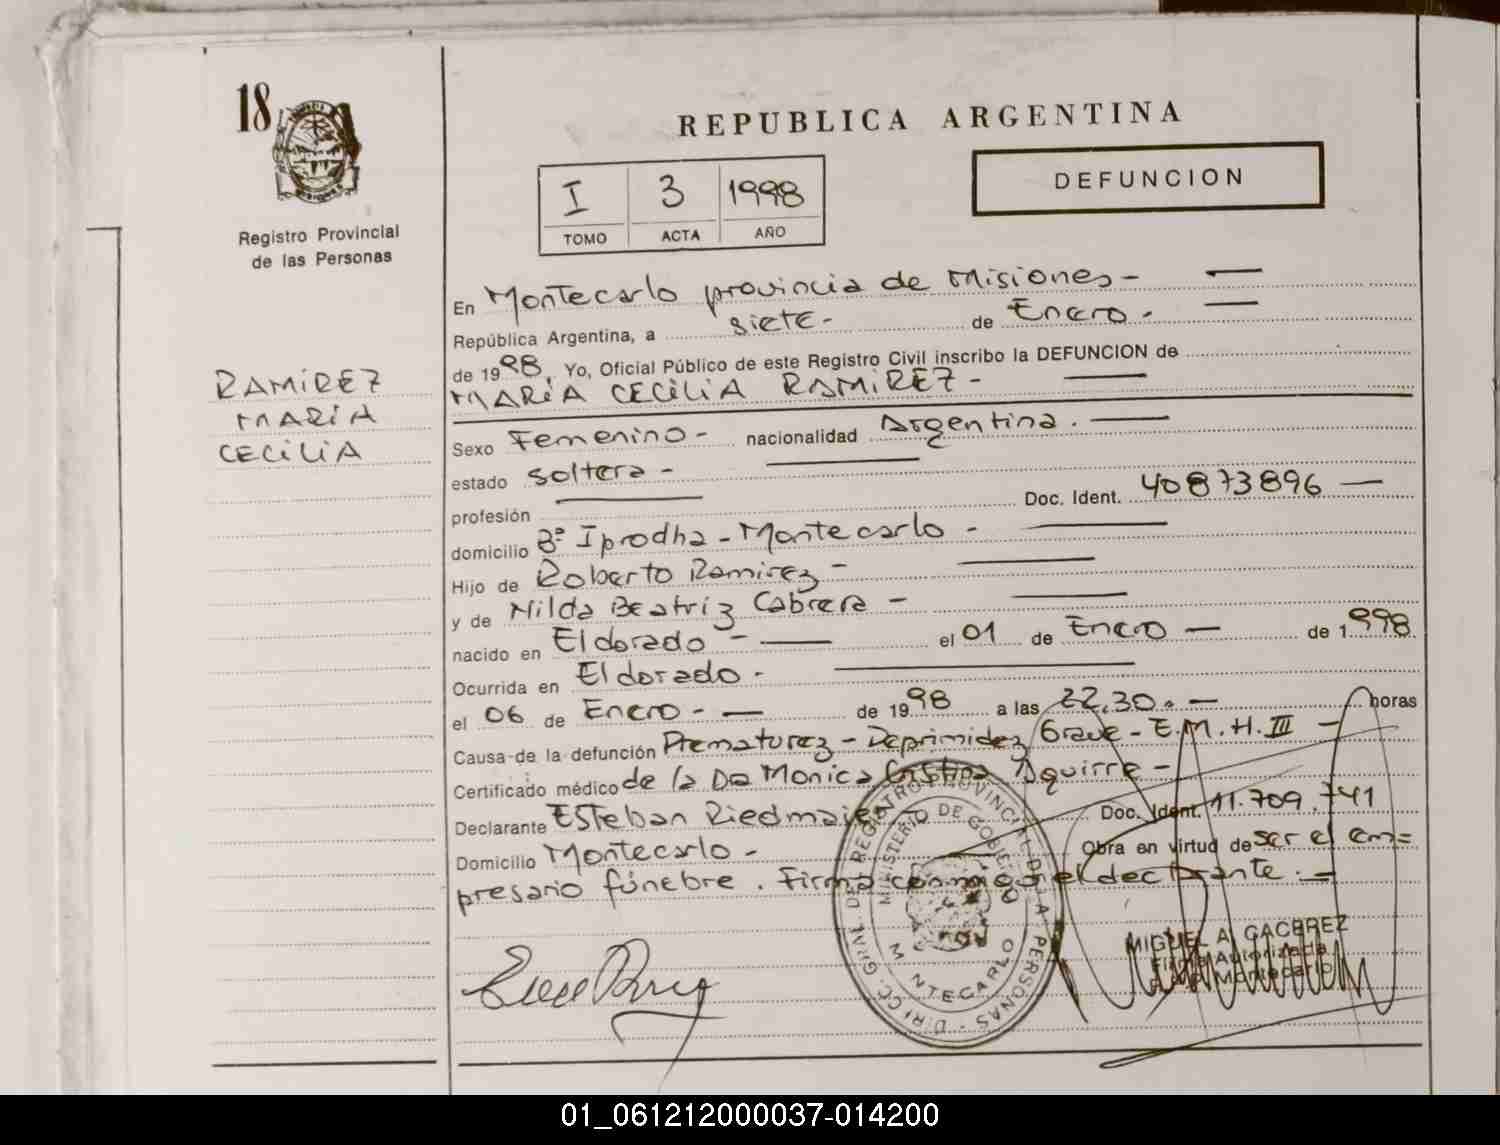 18
Registro Provincial
de las Personas
RAMÍREZ
MARIA
CECILIA
REPUBLICA ARGENTINA
I 3 1998
TOMO ACTA AÑO
DEFUNCION
En Montecarlo provincia de Misiones -
República Argentina, a siete - de Enero -
de 1998, Yo, Oficial Público de este Registro Civil inscribo la DEFUNCION de
MARÍA CECILIA RAMIREZ -
Sexo Femenino - nacionalidad Argentina. -
estado soltera -
profesión Doc. Ident. 40873896 -
domicilio Bº Iprodha - Montecarlo -
Hijo de Roberto Ramirez -
y de Nilda Beatriz Cabrera -
nacido en Eldorado - el 01 de Enero - de 1.998
Ocurrida en Eldorado -
el 06 de Enero - de 1998 a las 22,30. - horas
Causa de la defunción Prematurez - Deprimidez Grave - E.M.H. III -
Certificado médico de la Da Monica Cristina Aguirre -
Declarante Esteban Riedmaier Doc. Ident. 11.709.741
Domicilio Montecarlo - Obra en virtud de ser el em=
presario fúnebre. Firma conmigo el declarante. -
DIRECC. GRAL. DE REGISTRO PROVINCIAL DE LA PERSONAS
MINISTERIO DE GOBIERNO
MONTECARLO
MIGUEL A. GACEREZ
Firma Autorizada
Montecarlo
01_061212000037-014200